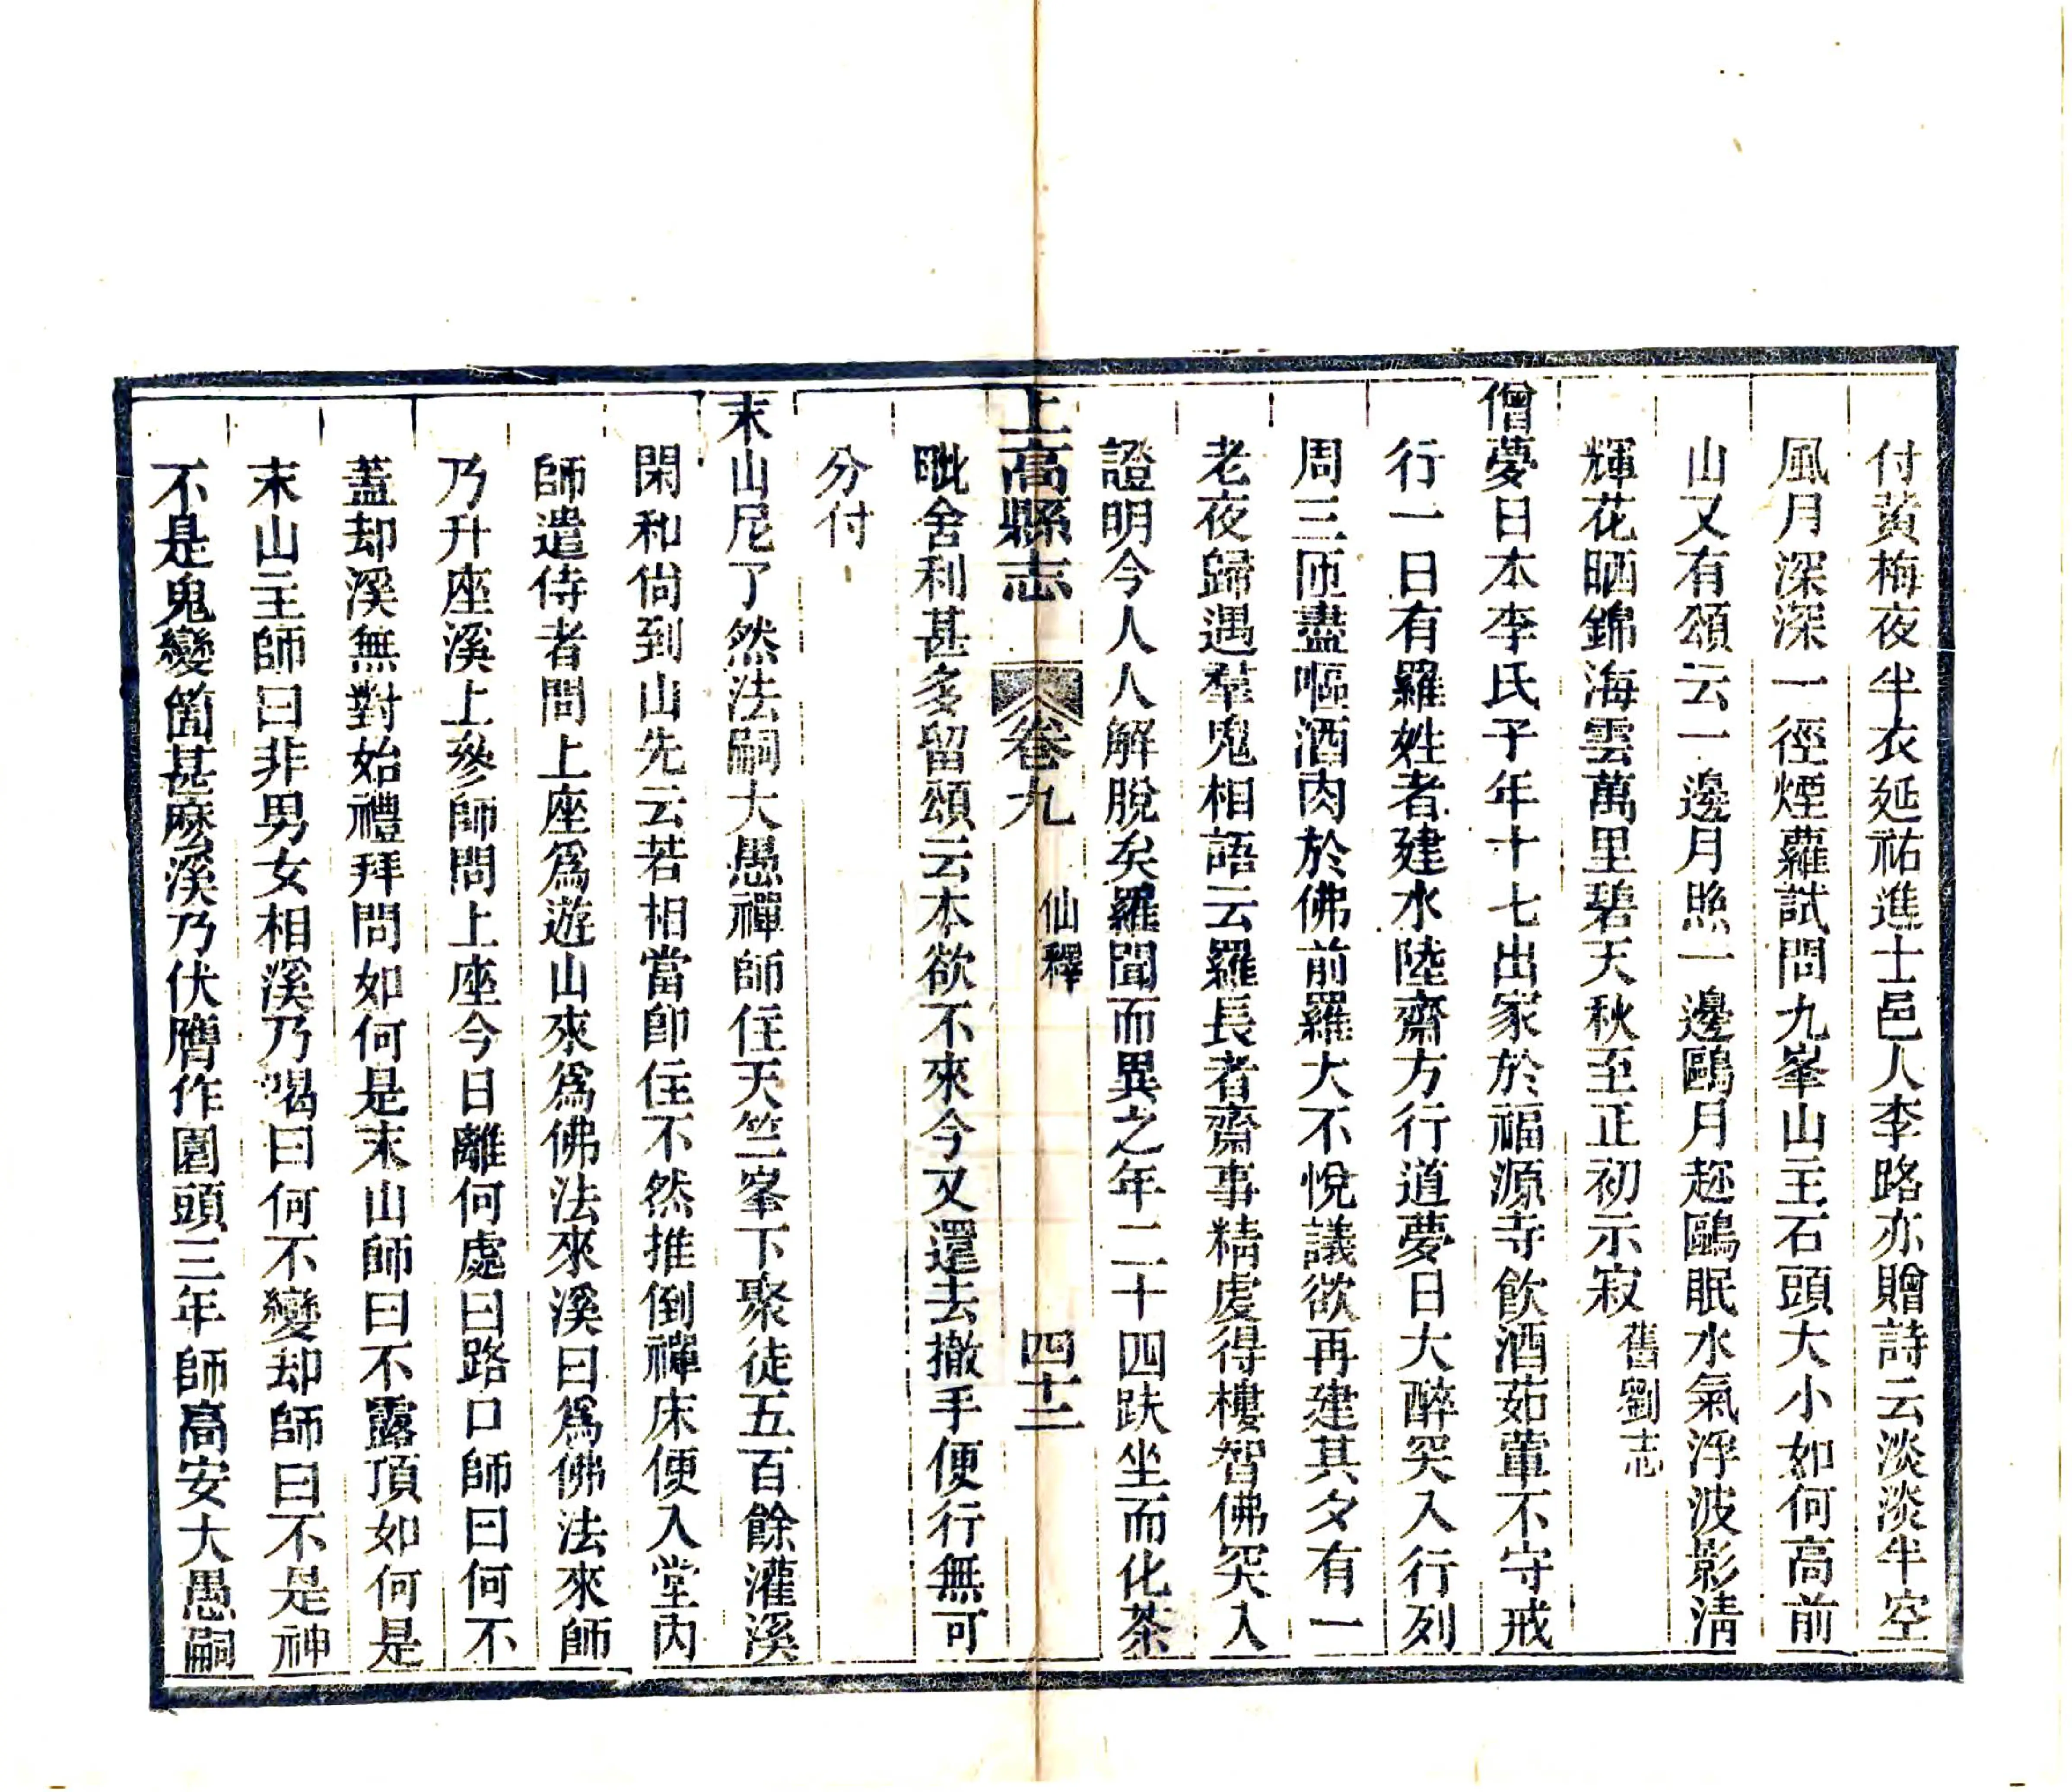 付黃梅夜半衣延祐進士邑人李路亦贈詩云淡淡半空
風月深深一徑煙蘿試問九峯山主石頭大小如何高前
山又有頌云一邊月照一邊鷗月起鷗眠水氣浮波影清
輝花晒錦海雲萬里碧天秋至正初示寂舊劉志
僧夢日本李氏子年十七出家於福源寺飲酒茹葷不守戒
行一日有羅姓者建水陸齋方行道夢日大醉突入行列
周三匝盡嘔酒肉於佛前羅大不悅議欲再建其夕有一
老夜歸遇羣鬼相語云羅長者齋事精虔得樓智佛突入
證明今人人解脫矣羅聞而異之年二十四趺坐而化茶
毗舍利甚多留頌云本欲不來今又還去撒手便行無可
分付
上高縣志 卷九 仙釋 四十二
末山尼了然法嗣大愚禪師住天竺峯下聚徒五百餘灌溪
閑和尙到山先云若相當卽住不然推倒禪床便入堂內
師遣侍者問上座爲遊山來爲佛法來溪曰爲佛法來師
乃升座溪上參師問上座今日離何處曰路口師曰何不
蓋却溪無對始禮拜問如何是末山師曰不露頂如何是
末山主師曰非男女相溪乃喝曰何不變却師曰不是神
不是鬼變箇甚麽溪乃伏膺作園頭三年師高安大愚嗣